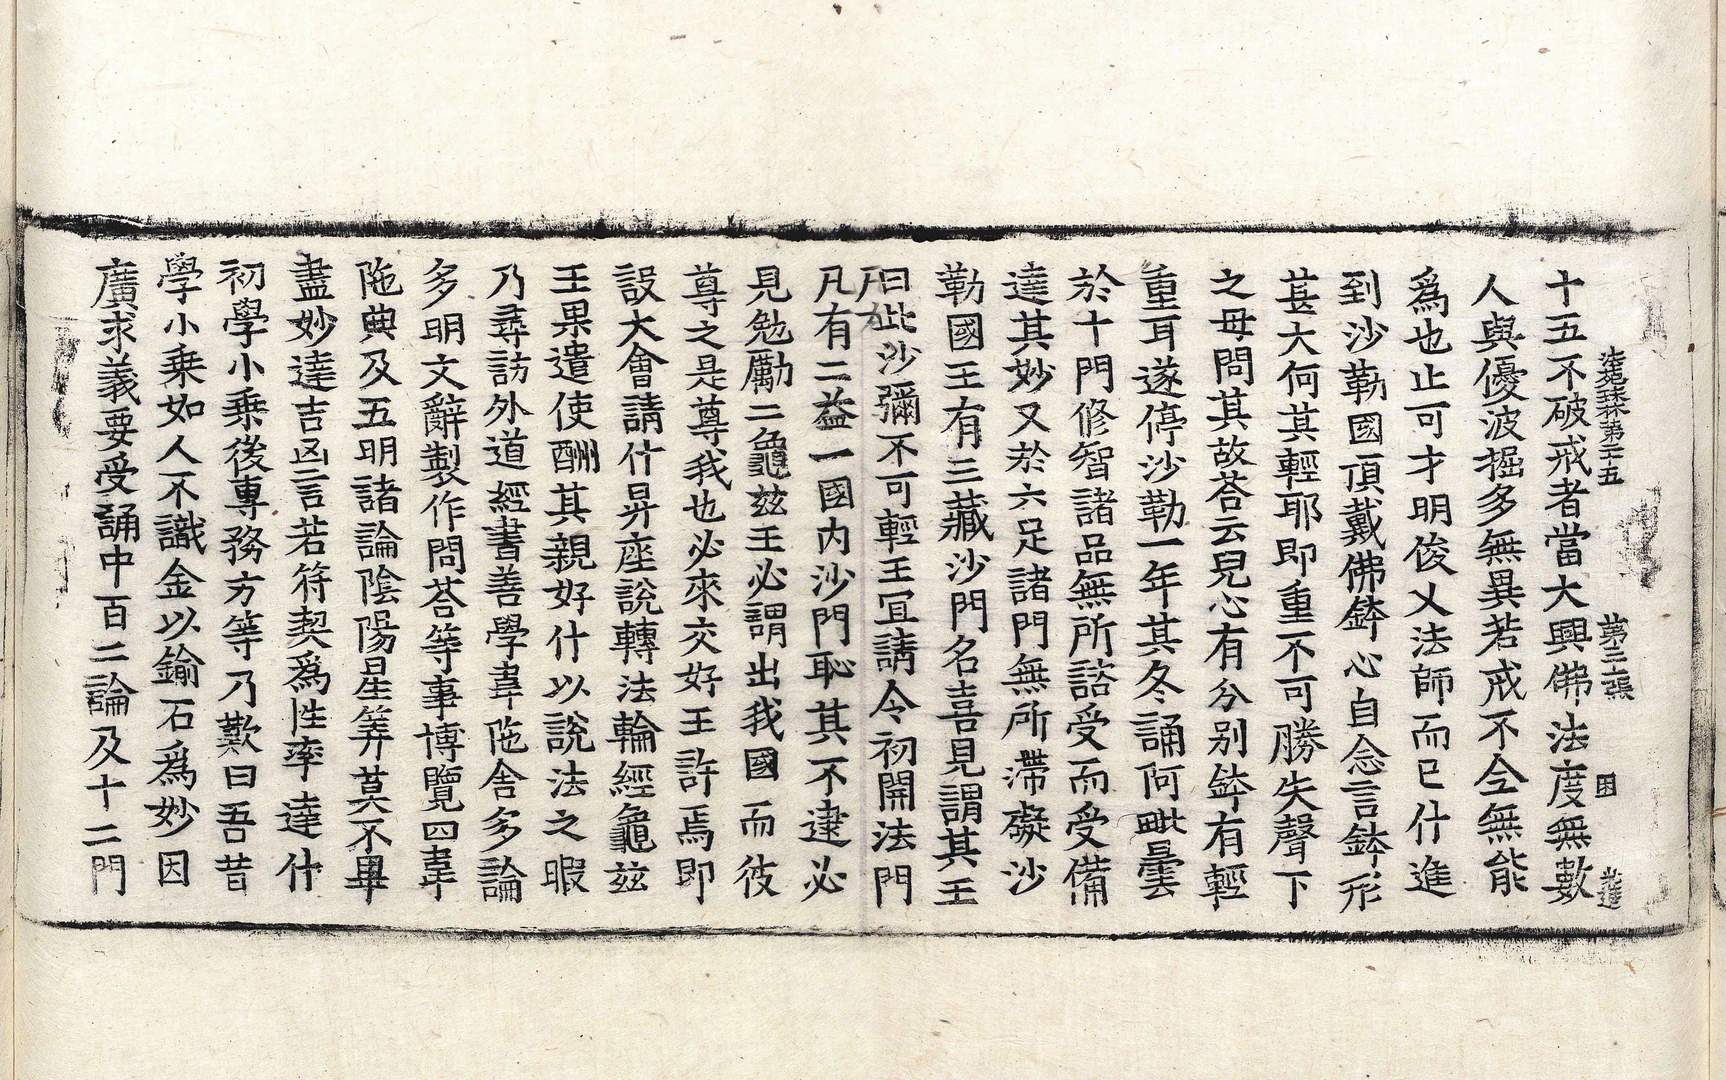 法苑珠林第二十五 第三十張 困 進
十五不破戒者當大興佛法度無數
人與優波掘多無異若戒不全無能
爲也止可才明俊乂法師而已什進
到沙勒國頂戴佛鉢心自念言鉢形
甚大何其輕耶即重不可勝失聲下
之母問其故荅云兒心有分別鉢有輕
重耳遂停沙勒一年其冬誦阿毗曇
於十門修智諸品無所諮受而受備
達其妙又於六足諸門無所滯礙沙
勒國王有三藏沙門名喜見謂其王
曰此沙彌不可輕王宜請令初開法門
凡有二益一國內沙門恥其不逮必
見勉勵二龜玆王必謂出我國而彼
尊之是尊我也必來交好王許焉即
設大會請什昇座說轉法輪經龜玆
王果遣使酬其親好什以說法之暇
乃尋訪外道經書善學韋陁舍多論
多明文辭製作問荅等事博覽四韋
陁典及五明諸論陰陽星筭莫不畢
盡妙達吉凶言若符契爲性率達什
初學小乗後專務方等乃歎曰吾昔
學小乗如人不識金以鍮石爲妙因
廣求義要受誦中百二論及十二門